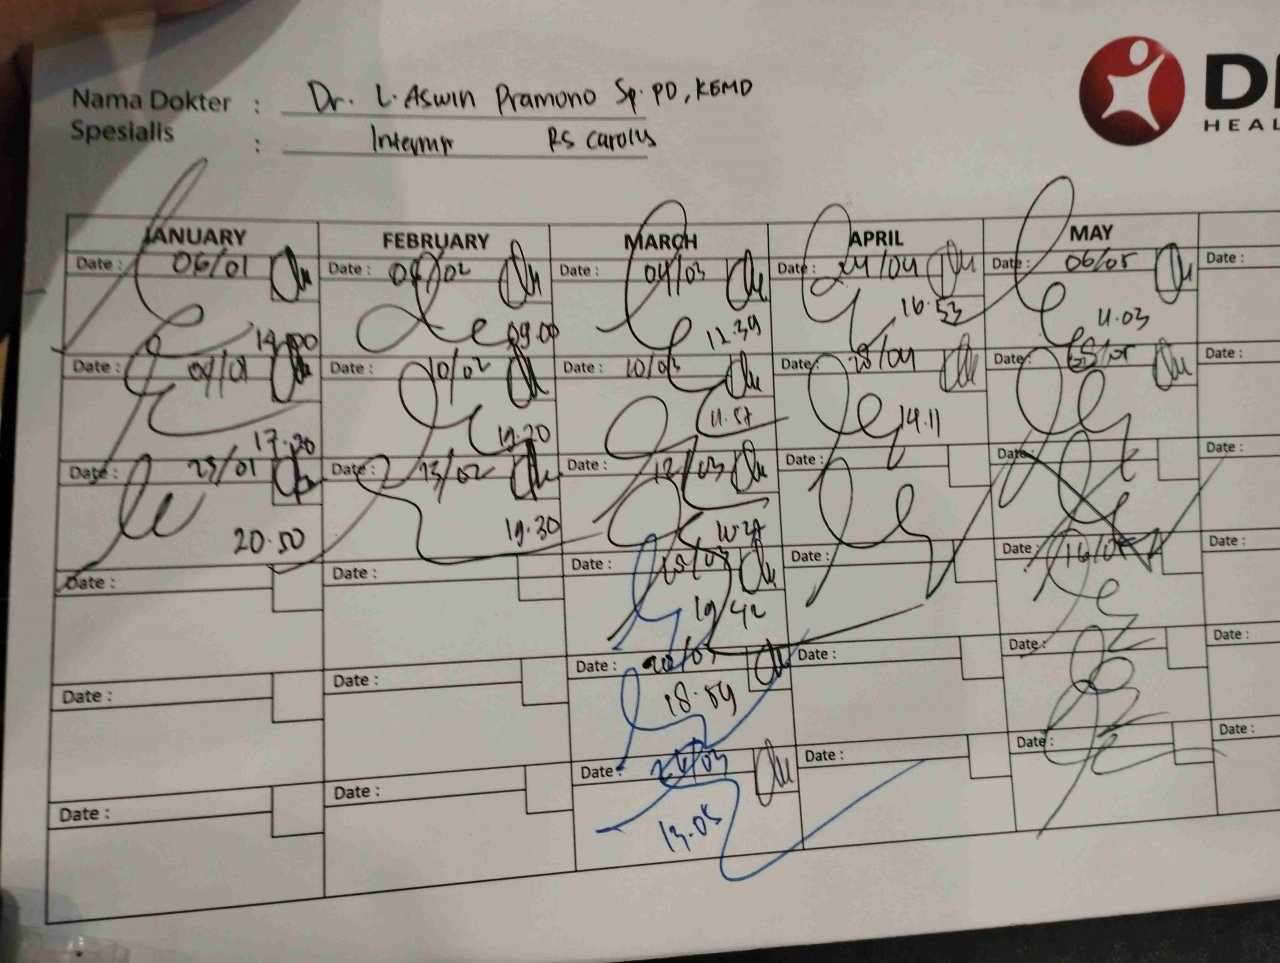 Nama Dokter : Dr. L. Aswin Pramono Sp.PD, KEMD
Spesialis : RS Carolus
HEAL
JANUARY FEBRUARY MARCH APRIL MAY
Date : 06/01 Date : Date : 04/03 Date : 24/04 Date : 06/05 Date :
14.00 09.00 12.39 16.53 11.03
Date : Date : 10/02 Date : 10/03 Date : 28/04 Date : Date :
17.20 19.20 11.57 14.11
Date : 23/01 Date : 13/02 Date : 12/03 Date : Date : Date :
20.50 19.30 10.27
Date : Date : Date : Date : Date : Date :
19.42
Date : Date : Date : 20/03 Date : Date : Date :
18.59
Date : Date : Date : 26/03 Date : Date : Date :
13.05